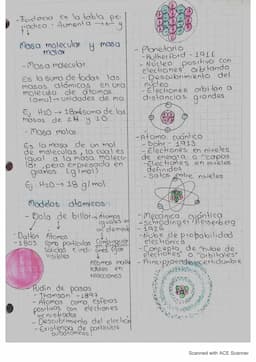 - Tendencia en la tabla pe-
riódica - Aumenta
Masa molecular y masa
molar
- Masa molecular
Es la suma de todas las
masas atómicas en una
molécula de átomos
(uma) - unidades de ma
Ej: H2O → 18 suma de las
masas de 2H y 1O
- Masa molar
Es la masa de un mol
de moléculas, la cual es
igual a la masa molecu-
lar, pero expresada en
gramos (g/mol)
Ej: H2O → 18 g/mol
Modelos atómicos
- Bola de billar
- Dalton
- 1803
Átomos
como partículas
sólidas e indi-
visibles
- Pudín de pasas
- Thomson - 1897
- Átomos como esferas
positivas con electrones
incrustados
- Descubrimiento del electrón
- Existencia de partículas
- Planetario
- Rutherford - 1911
- Núcleo positivo con
electrones orbitando
- Descubrimiento del
núcleo
- Electrones orbitan a
distancias grandes
- Átomo cuántico
- Bohr - 1913
- Electrones en niveles
de energía o "capas"
- Electrones en niveles
definidos
- Saltos entre niveles
- Mecánica cuántica
- Schrödinger/Heisenberg
- 1926
- Nube de probabilidad
electrónica
- Concepto de "nube de
electrones" o "orbitales"
- Principio de incertidumbre
Scanned with ACE Scanner